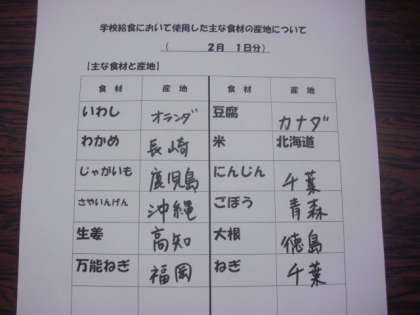 学校給食において使用した主な食材の産地について
( 2月 1日分)
【主な食材と産地】
食材 産地 食材 産地
いわし オランダ 豆腐 カナダ
わかめ 長崎 米 北海道
じゃがいも 鹿児島 にんじん 千葉
さやいんげん 沖縄 ごぼう 青森
生姜 高知 大根 徳島
万能ねぎ 福岡 ねぎ 千葉